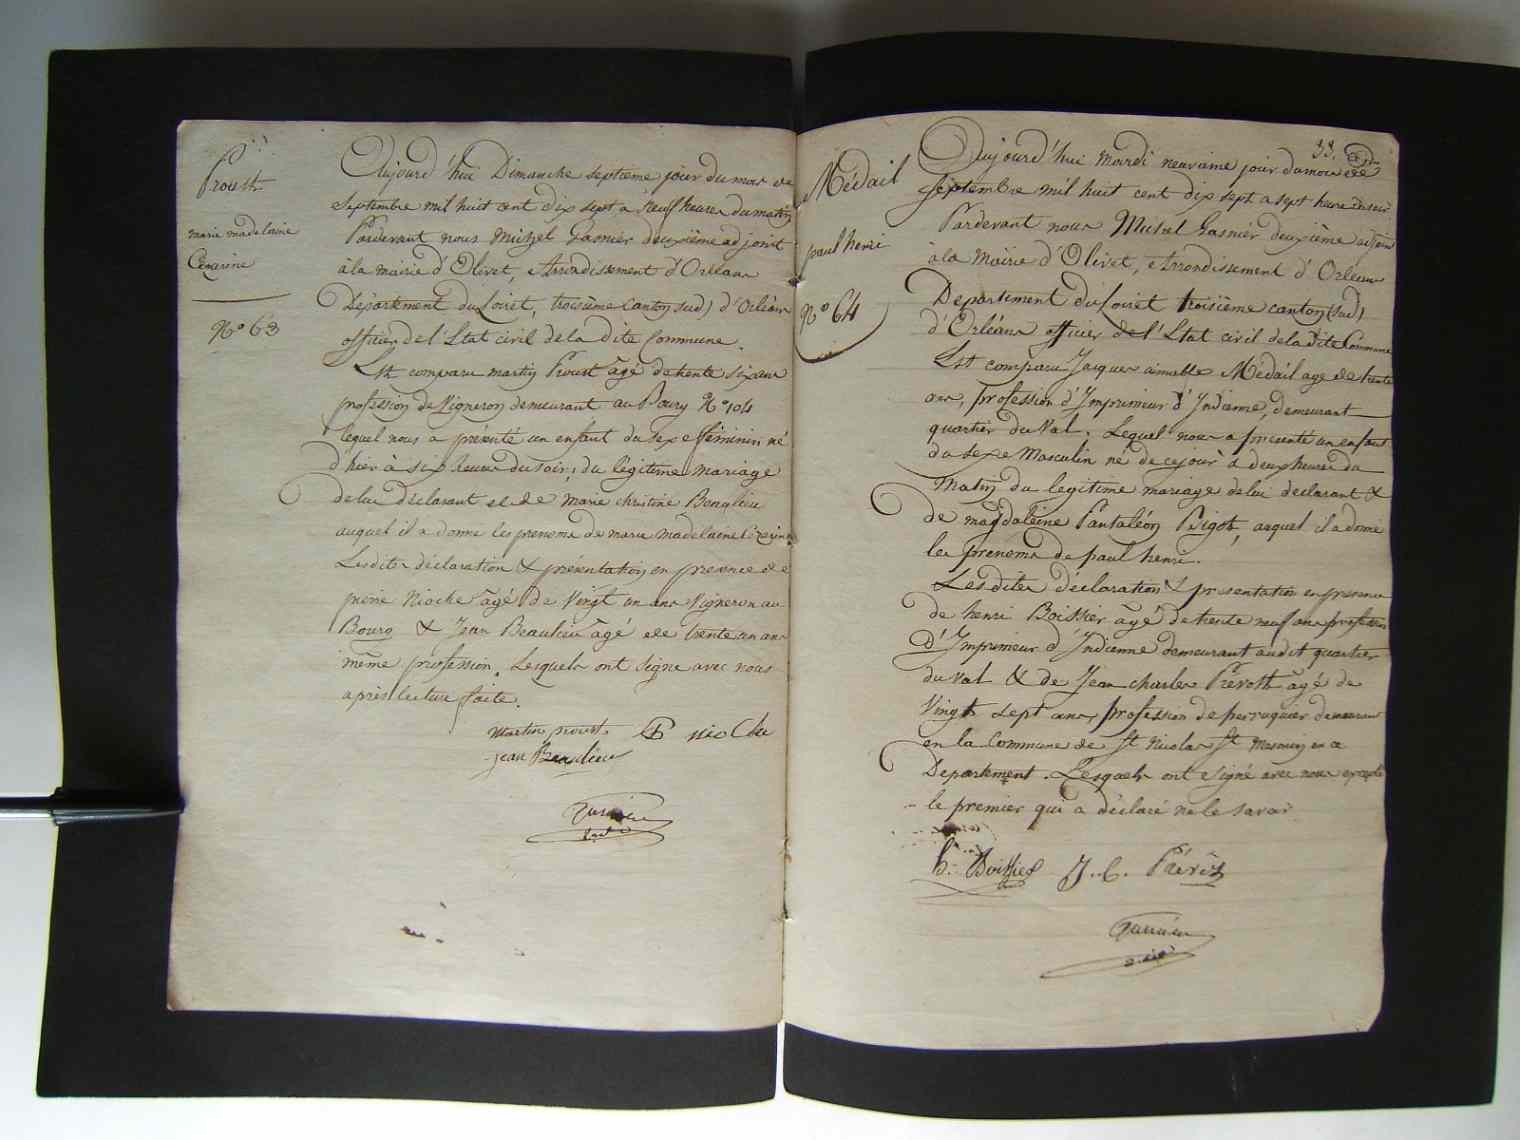 Proust
marie madelaine
Cézarine
N.° 63
Aujourd'hui Dimanche septieme jour du mois de
Septembre mil huit cent dix sept à Neuf heures du matin
Pardevant nous Michel Gasnier deuxième adjoint
à la mairie d'Olivet, Arrondissement d'Orléans
Département du Loiret, troisième Canton (sud) d'Orléans
officier de l'Etat civil de la dite Commune.
Est comparu martin Proust âgé de trente six ans
profession de Vigneron demeurant au Bourg N.° 104
lequel nous a présenté un enfant du sexe féminin né
d'hier à six heures du soir, du légitime mariage
de lui déclarant et de marie christine Beaulieu
auquel il a donné les prenoms de marie madelaine Cézarine
Lesdites déclaration & présentation en presence de
pierre Nioche âgé de Vingt un ans Vigneron au
Bourg & Jean Beaulieu âgé de trente un ans
même profession. Lesquels ont signé avec nous
après lecture faite.
martin proust. P nioche
jean Beaulieu
Gasnier
33.
Médail
paul henri
N.° 64
Aujourd'hui mardi neuvaime jour du mois de
Septembre mil huit cent dix sept a sept heure du soir
Pardevant nous Michel Gasnier deuxième adjoint
à la Mairie d'Olivet, Arrondissement d'Orléans
Departement du Loiret troisième canton (sud)
d'Orléans officier de l'Etat civil de la dite Commune
Est comparu Jacques aimable Médail agé de trente
ans, profession d'Imprimeur d'Indienne, demeurant
quartier du Val. Lequel nous a présenté un enfant
du sexe Masculin né de ce jour à deux heures du
Matin du legitime mariage de lui déclarant &
de magdaleine Pantaléon Bigot, auquel il a donné
les prénoms de paul henri.
Lesdites déclaration & presentation en presence
de henri Boissier âgé de trente neuf ans profession
d'Imprimeur d'Indienne demeurant audit quartier
du Val & de Jean charles Prévost âgé de
Vingt sept ans, profession de perruquier demeurant
en la Commune de St Nicolas St Mesmin en ce
Departement. Lesquels ont signé avec nous excepté
le premier qui a déclaré ne le savoir
h. Boissier J. C. Prévost
Gasnier